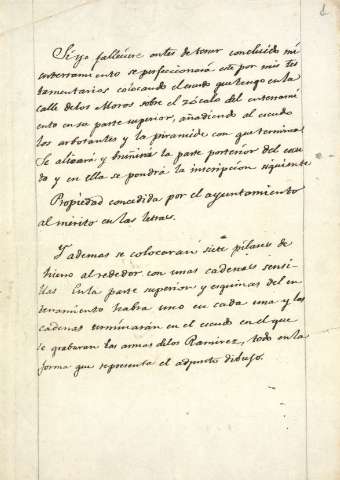 1
Si yo falleciere antes de tener concluido mi
enterramiento se perfeccionará este por mis tes
tamentarios colocando el escudo que tengo en la
calle de los Moros sobre el zócalo del enterrami
ento en su parte superior, añadiendo al escudo
los arbotantes y la piramide con que termina.
Se alisará y bruñirá la parte posterior del escu
do y en ella se pondrá la inscripcion siguiente
Propiedad concedida por el ayuntamiento
al mérito en las letras.
Y ademas se colocarán siete pilares de
hierro al rededor con unas cadenas sensi-
llas En la parte superior y esquinas del en
terramiento habra uno en cada una y las
cadenas terminarán en el escudo en el que
se grabaran las armas de los Ramirez, todo en la
forma que representa el adjunto dibujo.